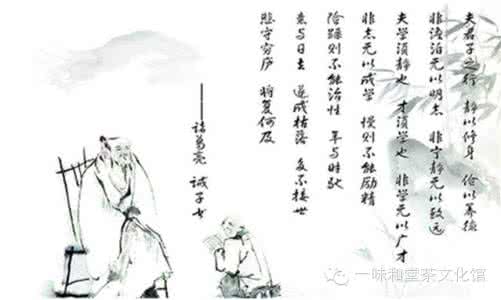 夫君子之行 静以修身 俭以养德
非淡泊无以明志 非宁静无以致远
夫学须静也 才须学也 非学无以广才
非志无以成学 慢则不能励精
险躁则不能治性 年与时驰
意与日去 遂成枯落 多不接世
悲守穷庐 将复何及
——诸葛亮 诫子书
一味和堂茶文化馆